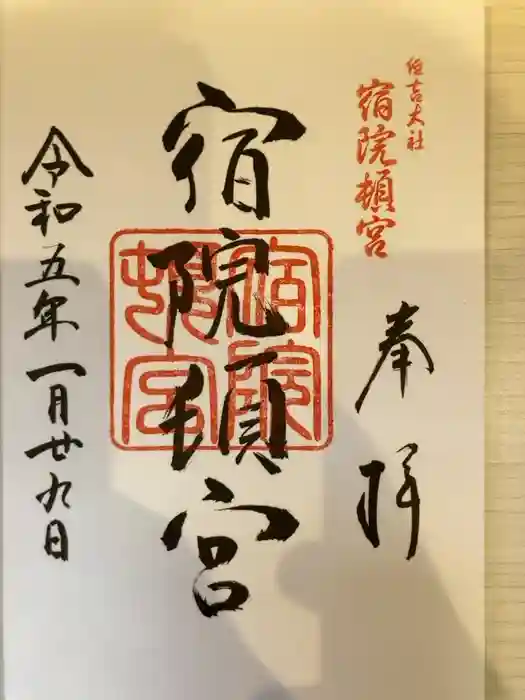 住吉大社
宿院頓宮
奉拝
宿院頓宮
宿院頓宮
令和五年一月廿九日